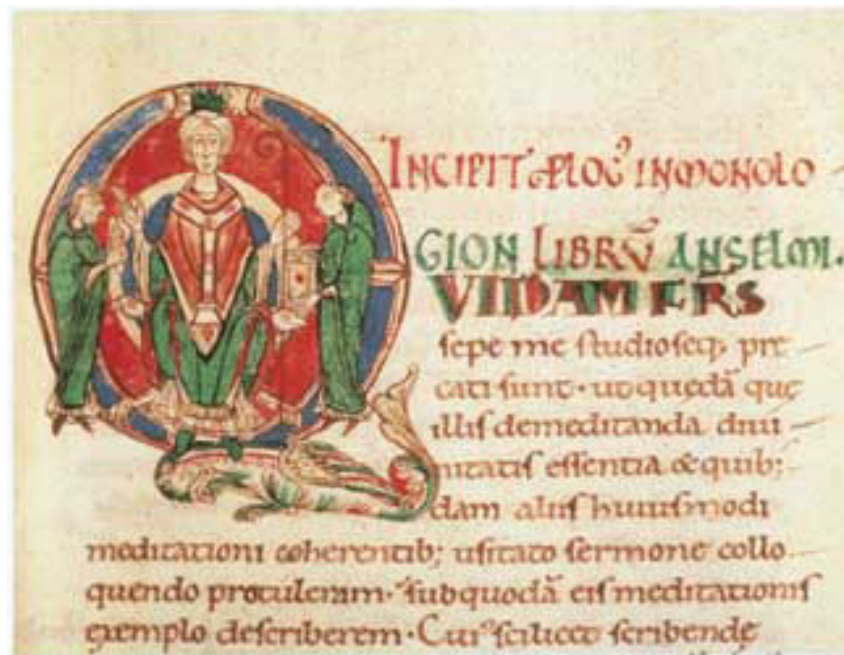 INCIPIT PLOG̕ INMONOLO
GION LIBRV̄ ANSELMI.
VIDAM FR̄S
sepe me studioseq; pre
cati sunt· ut quedā que
illis demeditanda divi
nitatis essentia & quib;
dam aliis huiusmodi
meditationi coherentib; usitato sermone collo
quendo protuleram· sub quodā eis meditationis
exemplo describerem· Cui᷒ scilicet scribende